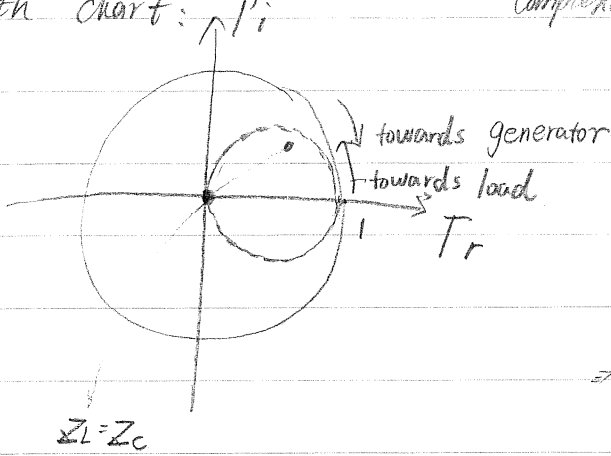 chart: Γi
towards generator
towards load
1
Γr
ZL=Zc